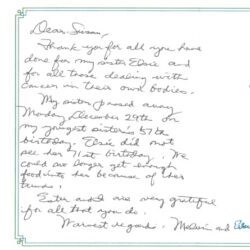 Dear Susan,
Thank you for all you have
done for my sister Elsie and
for all those dealing with
cancer in their own bodies.
My sister passed away
Monday December 29th on
my youngest sister's 57th
birthday. Elsie did not
see her 71st birthday. We
could no longer get enough
food into her because of the
tumors.
Ester and I are very grateful
for all that you do.
Warmest regards. Melvin and